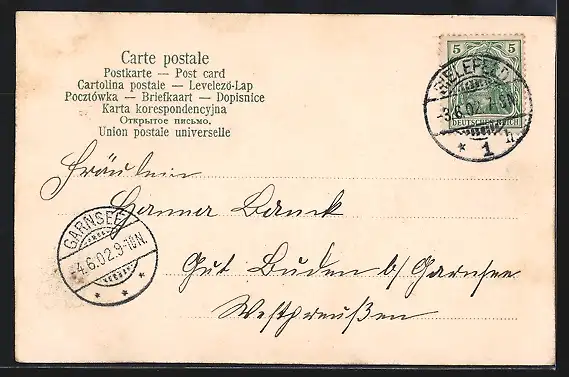 Carte postale
Postkarte — Post card
Cartolina postale — Levelező-Lap
Pocztówka — Briefkaart — Dopisnice
Karta korespondencyjna
Открытое письмо.
Union postale universelle
5 5
DEUTSCHES REICH
BIELEFELD
3.6.02.7-8N.
* 1 h
Fräulein
Hanna Banck
Gut Buden b/ Garnsee
Westpreußen
GARNSEE
4.6.02.9-10N.
* * *